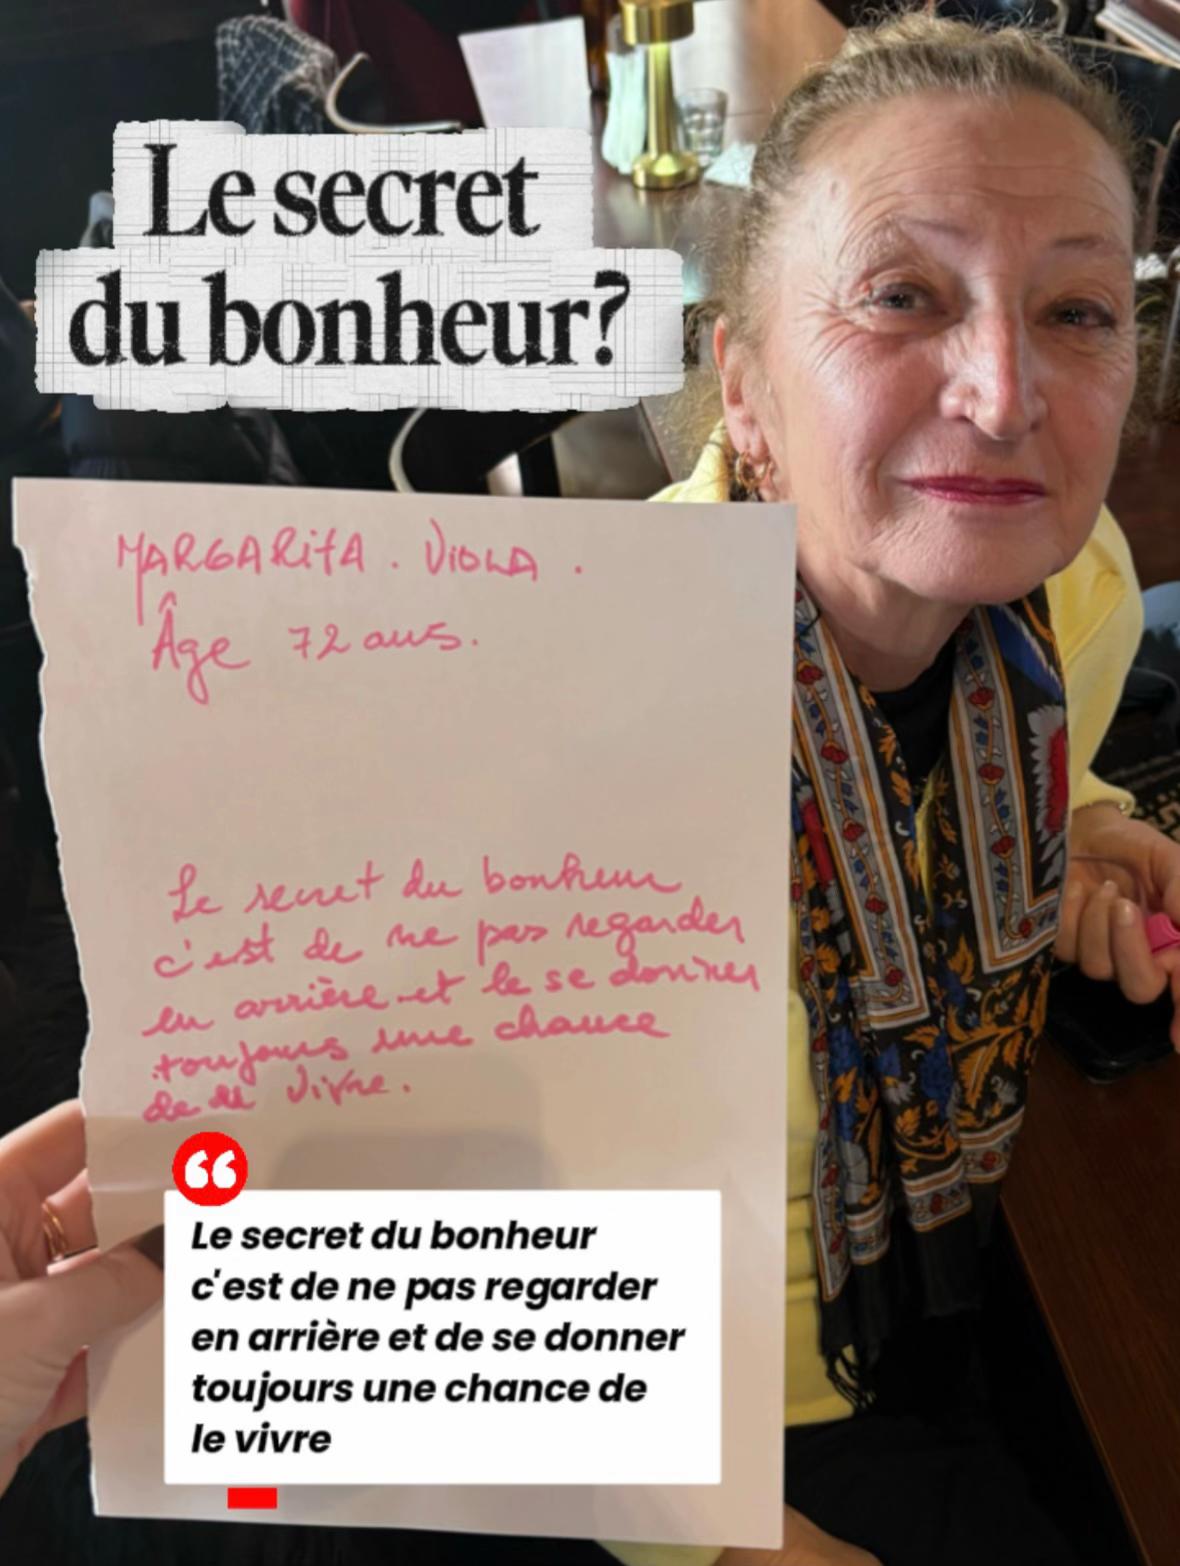 Le secret
du bonheur?
MARGARITA. VIOLA.
Âge 72 ans.
Le secret du bonheur
c'est de ne pas regarder
en arrière et le se donner
toujours une chance
de vivre.
“
Le secret du bonheur
c'est de ne pas regarder
en arrière et de se donner
toujours une chance de
le vivre